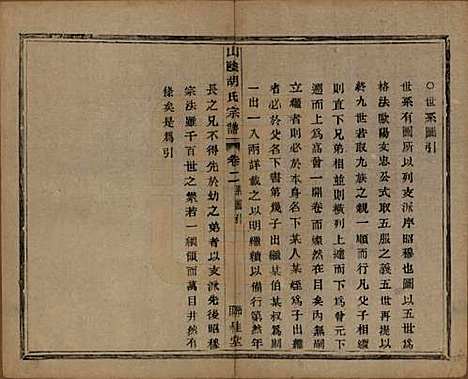 ○世系圖引
世系有圖所以列支派序昭穆也圖以五世再提以
格法歐陽文忠公式取五服之義五世再提以
終九世若取九族之親一順而行凡父子相傳
直下兄弟相並則橫列上溯而下爲曾元下
遡而上爲高曾一開卷而燦然在目矣內無嗣
立繼者則必於本身名下某人某姪子出繼
者必於父名下書第幾子出繼某伯某叔爲嗣
一出一入兩詳載之以明繼續以備查核第然年
山陰胡氏宗譜
卷二
系圖引
聯桂堂
長之兄不得先於幼之弟者以支派先後昭穆
宗法雖千百世之繁若一線類而萬目井然有
條矣是爲引